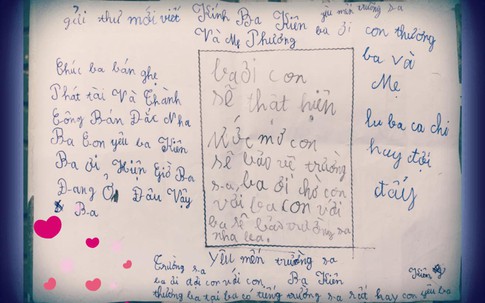 gửi thư mới viết
Kính Ba Kiên
Và Mẹ Phương
yêu mến trường sa
ba ơi con thương
ba và
Mẹ
Chúc ba bán ghẹ
Phát tài Và Thành
Công Bán Đắc Nha
Ba Con yêu ba Kiên
Ba ơi Hiện Giờ Ba
Đang Ở Đâu Vậy
Ba
ba ơi con
sẽ thật hiện
ước mơ con
sẽ bảo vệ trường
sa, ba ơi chờ con
với ba con với
ba sẽ bảo trường sa
nha ba.
hay đợi
đấy
Yêu mến trường sa
Trường sa
ba ơi đợi con với con Ba Kiên
Kiên
thương ba tại ba có trường sa rất hay con yêu ba